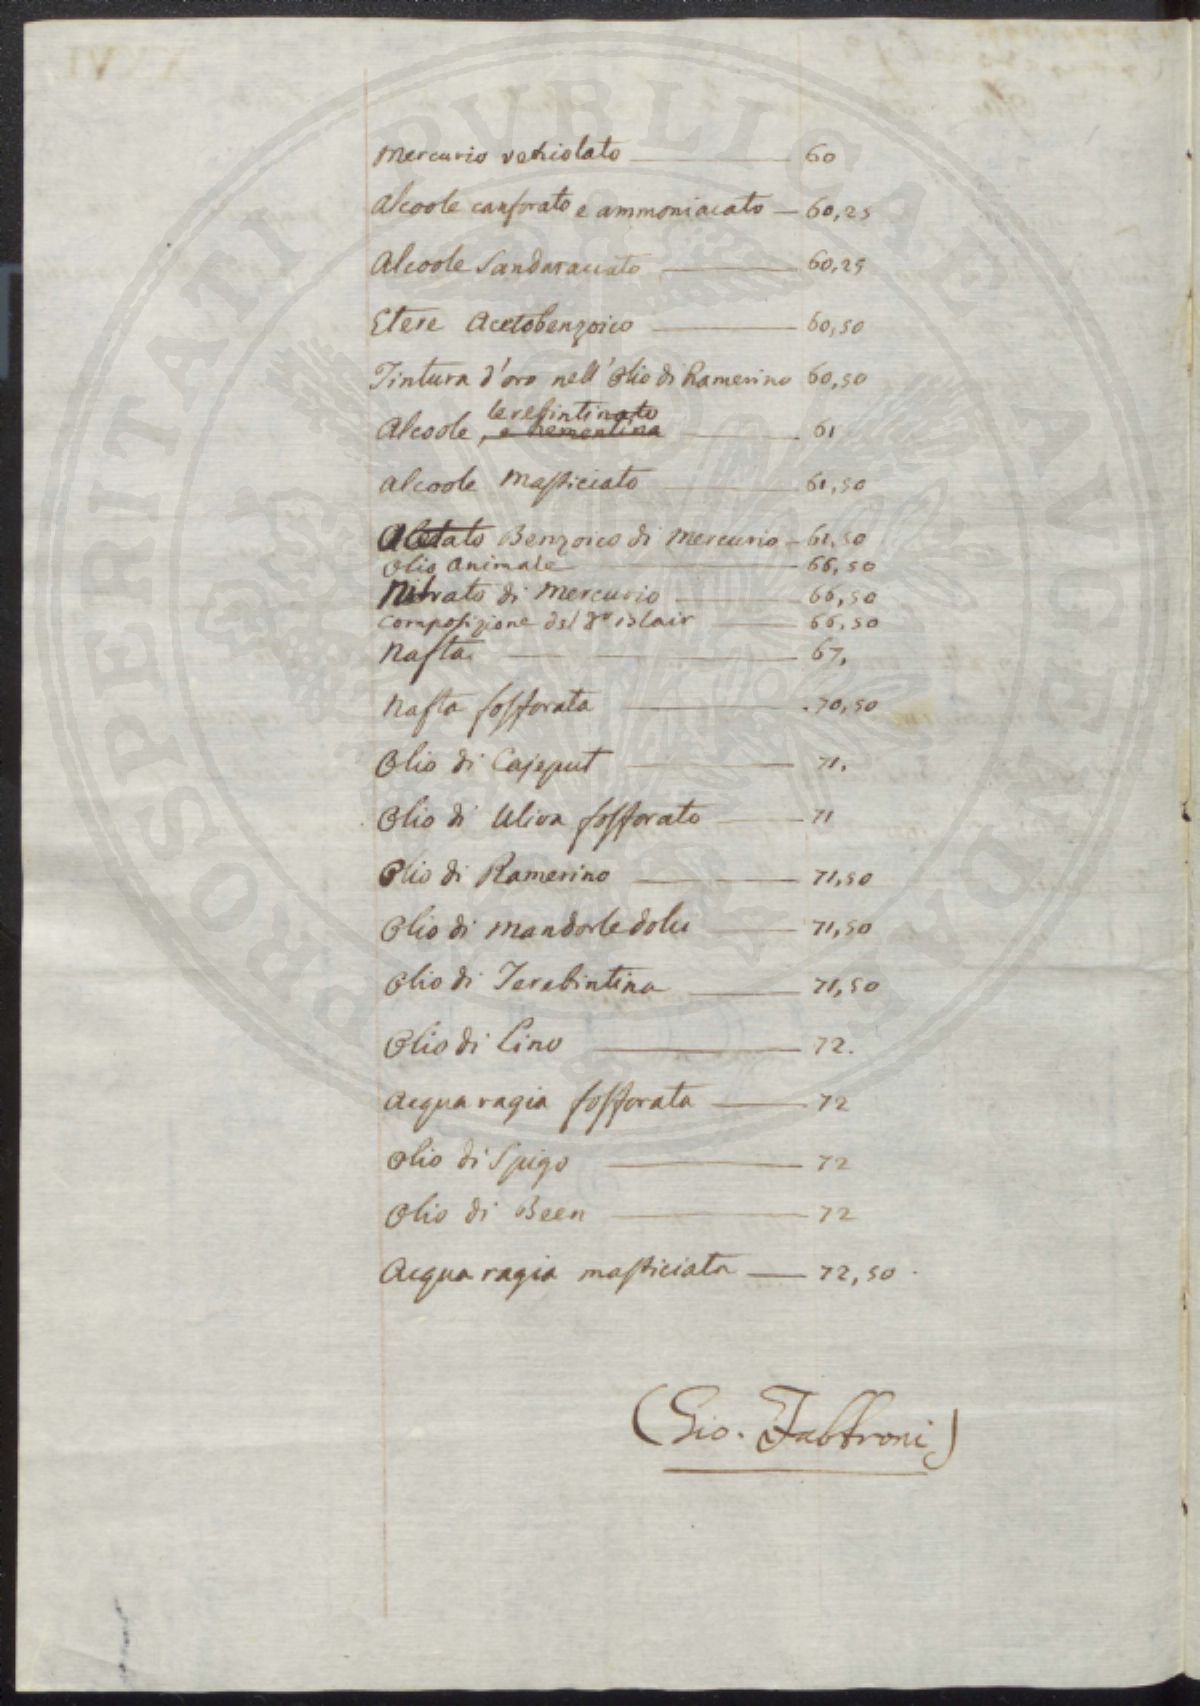 Mercurio vetriolato 60
Alcoole canforato e ammoniacato 60,25
Alcoole Sandaraccato 60,25
Etere Acetobenzoico 60,50
Tintura d'oro nell'Olio di Ramerino 60,50
terebintinato
Alcoole, 61
Alcoole Masticiato 61,50
Acetato Benzoico di Mercurio 61,50
Olio animale 66,50
Nitrato di Mercurio 66,50
Composizione del Dr Blair 66,50
Nafta 67,
Nafta fosforata 70,50
Olio di Cajeput 71.
Olio di Uliva fosforato 71
Olio di Ramerino 71,50
Olio di Mandorle dolci 71,50
Olio di Terebintina 71,50
Olio di Lino 72.
Acqua ragia fosforata 72
Olio di Spigo 72
Olio di Been 72
Acqua ragia masticiata 72,50
(Gio. Fabbroni)
PROSPERITATI PVBLICAE AVGENDAE